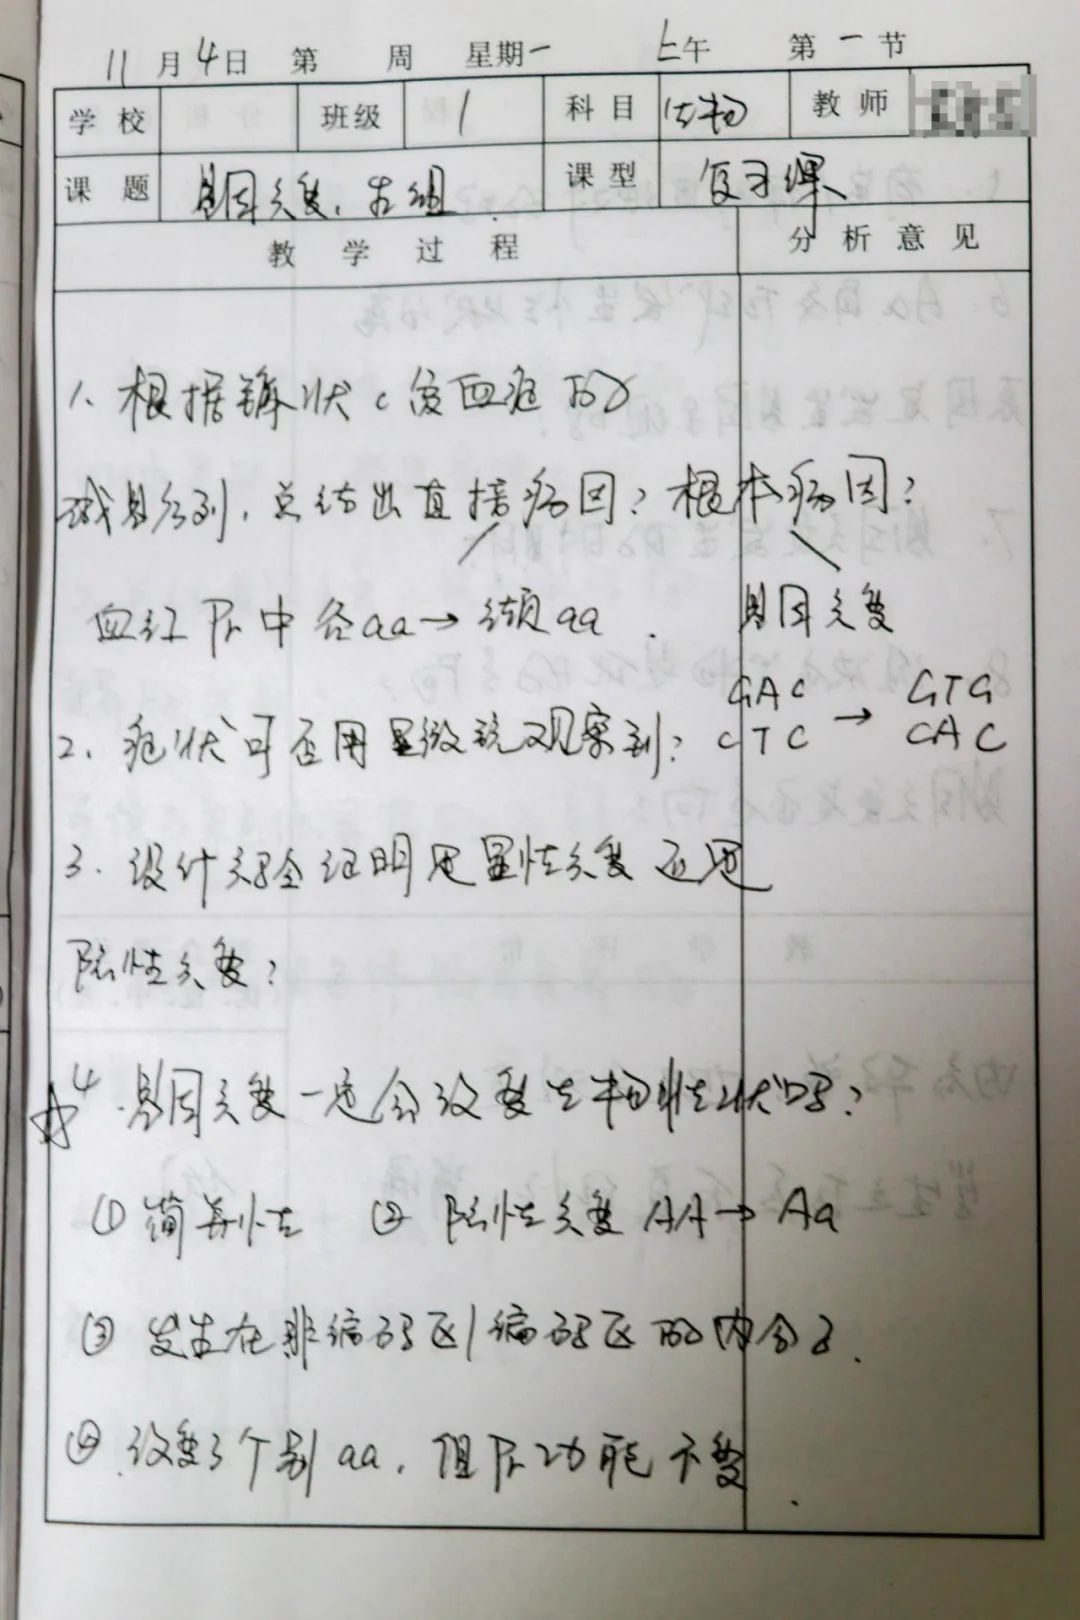 11月4日 第 周 星期一 上午 第一节
学校 班级 1 科目 生物 教师
课题 基因突变、重组 课型 复习课
教学过程 分析意见
1. 根据镰状 贫血症的
碱基序列,总结出直接病因?根本病因?
血红Pr中谷aa→缬aa. 基因突变
GAC → GTG
2. 症状可否用显微镜观察到? CTC CAC
3. 设计实验证明是显性突变还是
隐性突变?
☆4. 基因突变一定会改变生物性状吗?
① 简并性 ② 隐性突变 AA→Aa
③ 发生在非编码区/编码区的内含子.
④ 改变了个别aa,但Pr功能不变.